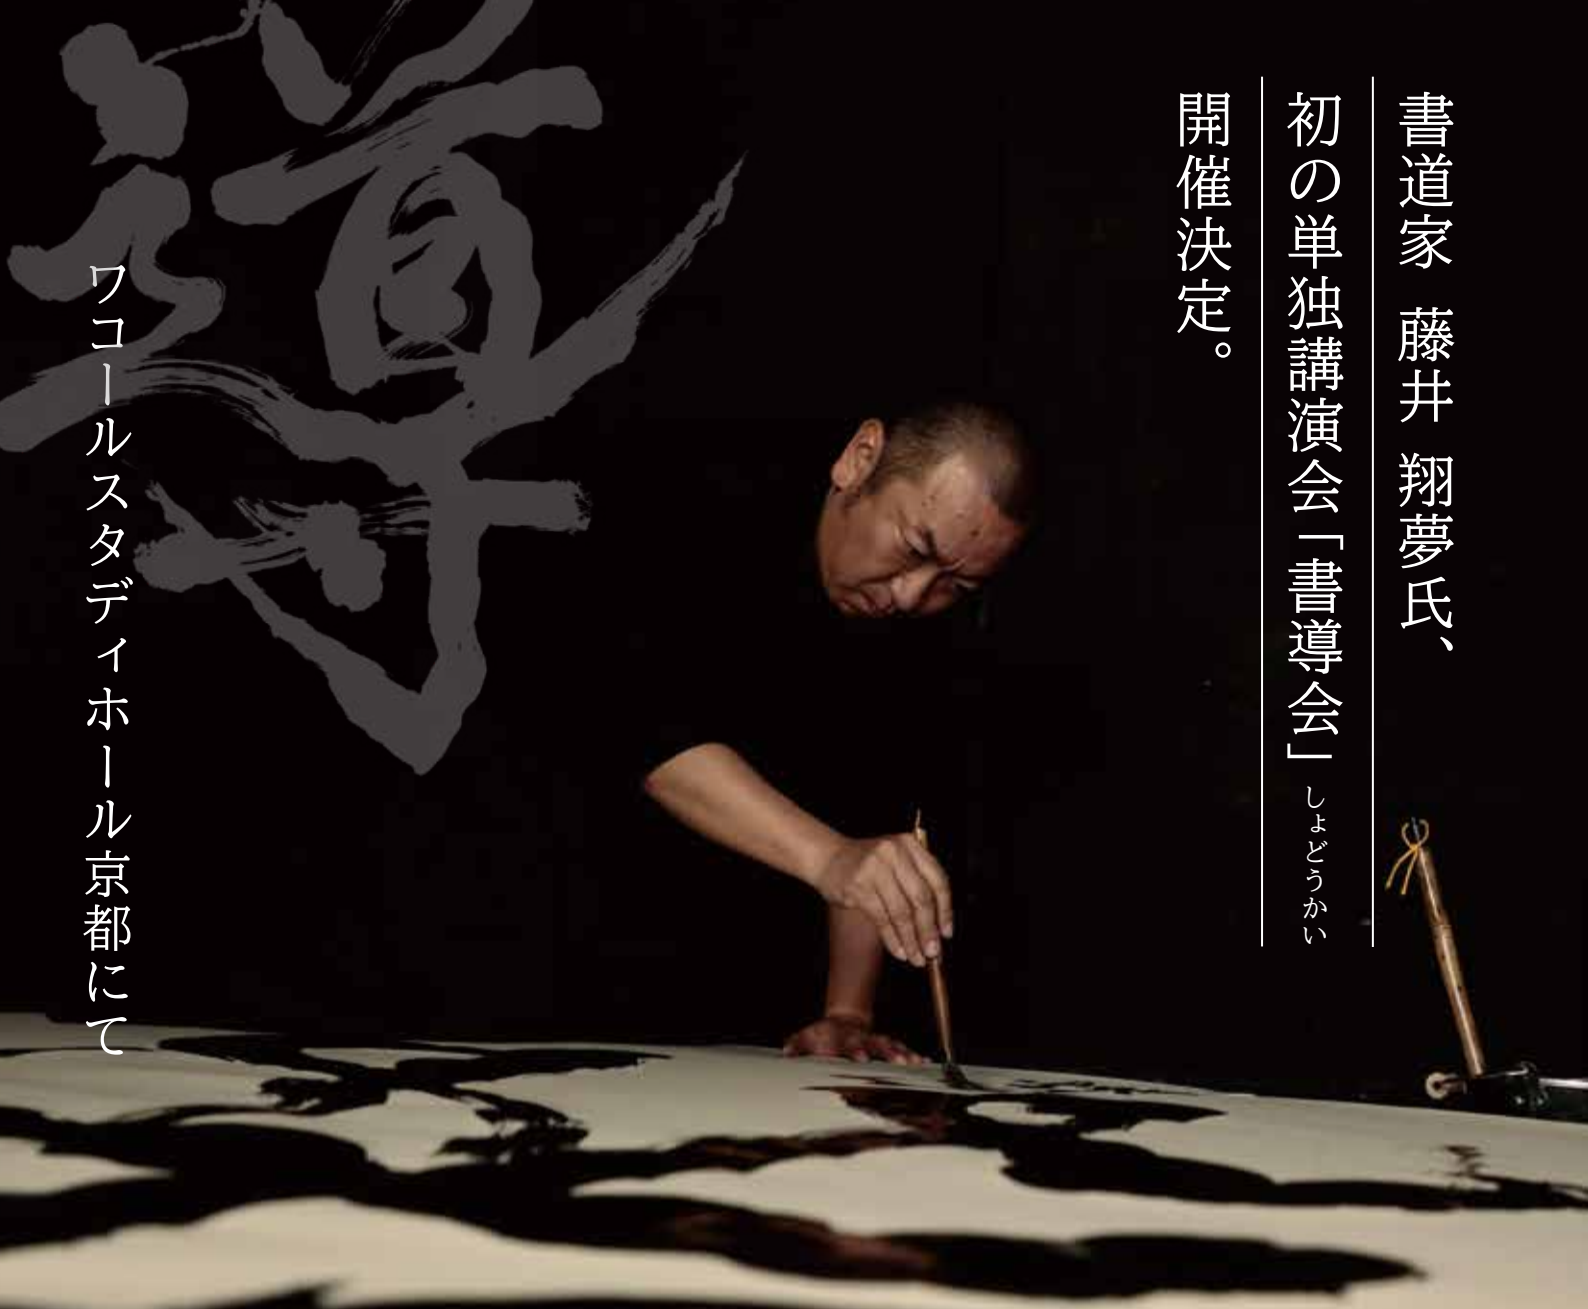 書道家 藤井 翔夢氏、
初の単独講演会「書導会」しょどうかい
開催決定。
導
ワコールスタディホール京都にて